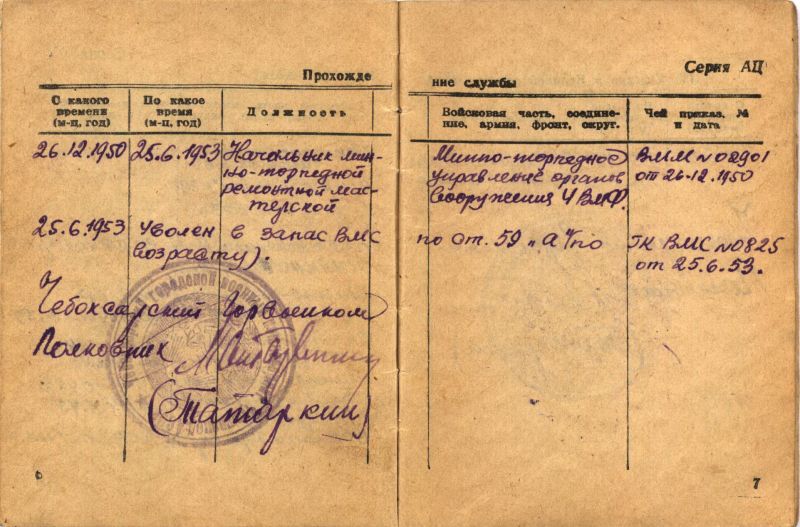 Прохожде
ние службы
Серия АЦ
С какого времени (м-ц, год)
По какое время (м-ц, год)
Должность
Войсковая часть, соедине-
ние, армия, фронт, округ.
Чей приказ, №
и дата
26.12.1950
25.6.1953
Начальник мин-
но-торпедной
ремонтной мас-
терской
Минно-торпедное
управление органов
вооружения ЧВМФ.
ВММ №02901
от 26.12.1950
25.6.1953
Уволен в запас ВМС
по ст. 59 „а“ (по
возрасту).
ГК ВМС №0825
от 25.6.53.
Чебоксарский Горвоенком
Полковник
(Татаркин)
7